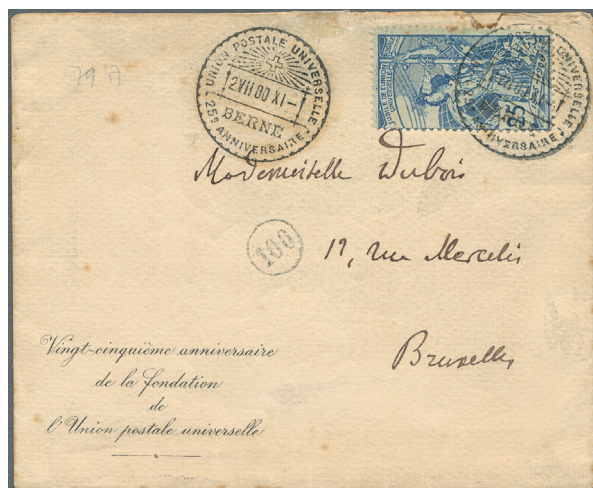 UNION POSTALE UNIVERSELLE
2 VII 00 XI–
BERNE
25e ANNIVERSAIRE
79 A
Mademoiselle Dubois
100
19, rue Mercelis
Bruxelles
Vingt-cinquième anniversaire
de la fondation
de
l'Union postale universelle